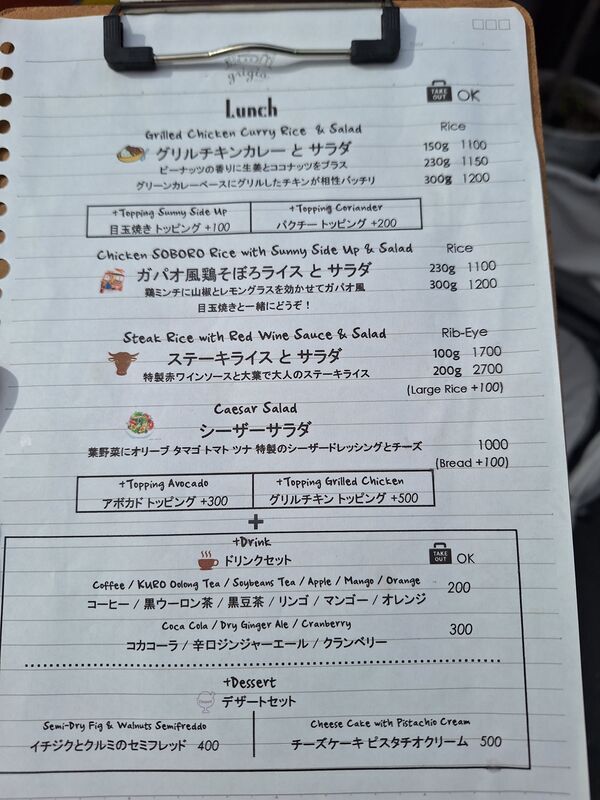 grigio
Lunch
TAKE OUT OK
Grilled Chicken Curry Rice & Salad Rice
グリルチキンカレー と サラダ 150g 1100
ピーナッツの香りに生姜とココナッツをプラス 230g 1150
グリーンカレーベースにグリルしたチキンが相性バッチリ 300g 1200
+Topping Sunny Side Up +Topping Coriander
目玉焼き トッピング +100 パクチー トッピング +200
Chicken SOBORO Rice with Sunny Side Up & Salad Rice
ガパオ風鶏そぼろライス と サラダ 230g 1100
鶏ミンチに山椒とレモングラスを効かせてガパオ風 300g 1200
目玉焼きと一緒にどうぞ！
Steak Rice with Red Wine Sauce & Salad Rib-Eye
ステーキライス と サラダ 100g 1700
特製赤ワインソースと大葉で大人のステーキライス 200g 2700
(Large Rice +100)
Caesar Salad
シーザーサラダ
葉野菜にオリーブ タマゴ トマト ツナ 特製のシーザードレッシングとチーズ 1000
(Bread +100)
+Topping Avocado +Topping Grilled Chicken
アボカド トッピング +300 グリルチキン トッピング +500
+
+Drink
ドリンクセット TAKE OUT OK
Coffee / KURO Oolong Tea / Soybeans Tea / Apple / Mango / Orange 200
コーヒー / 黒ウーロン茶 / 黒豆茶 / リンゴ / マンゴー / オレンジ
Coca Cola / Dry Ginger Ale / Cranberry 300
コカコーラ / 辛口ジンジャーエール / クランベリー
+Dessert
デザートセット
Semi-Dry Fig & Walnuts Semifreddo Cheese Cake with Pistachio Cream
イチジクとクルミのセミフレッド 400 チーズケーキ ピスタチオクリーム 500